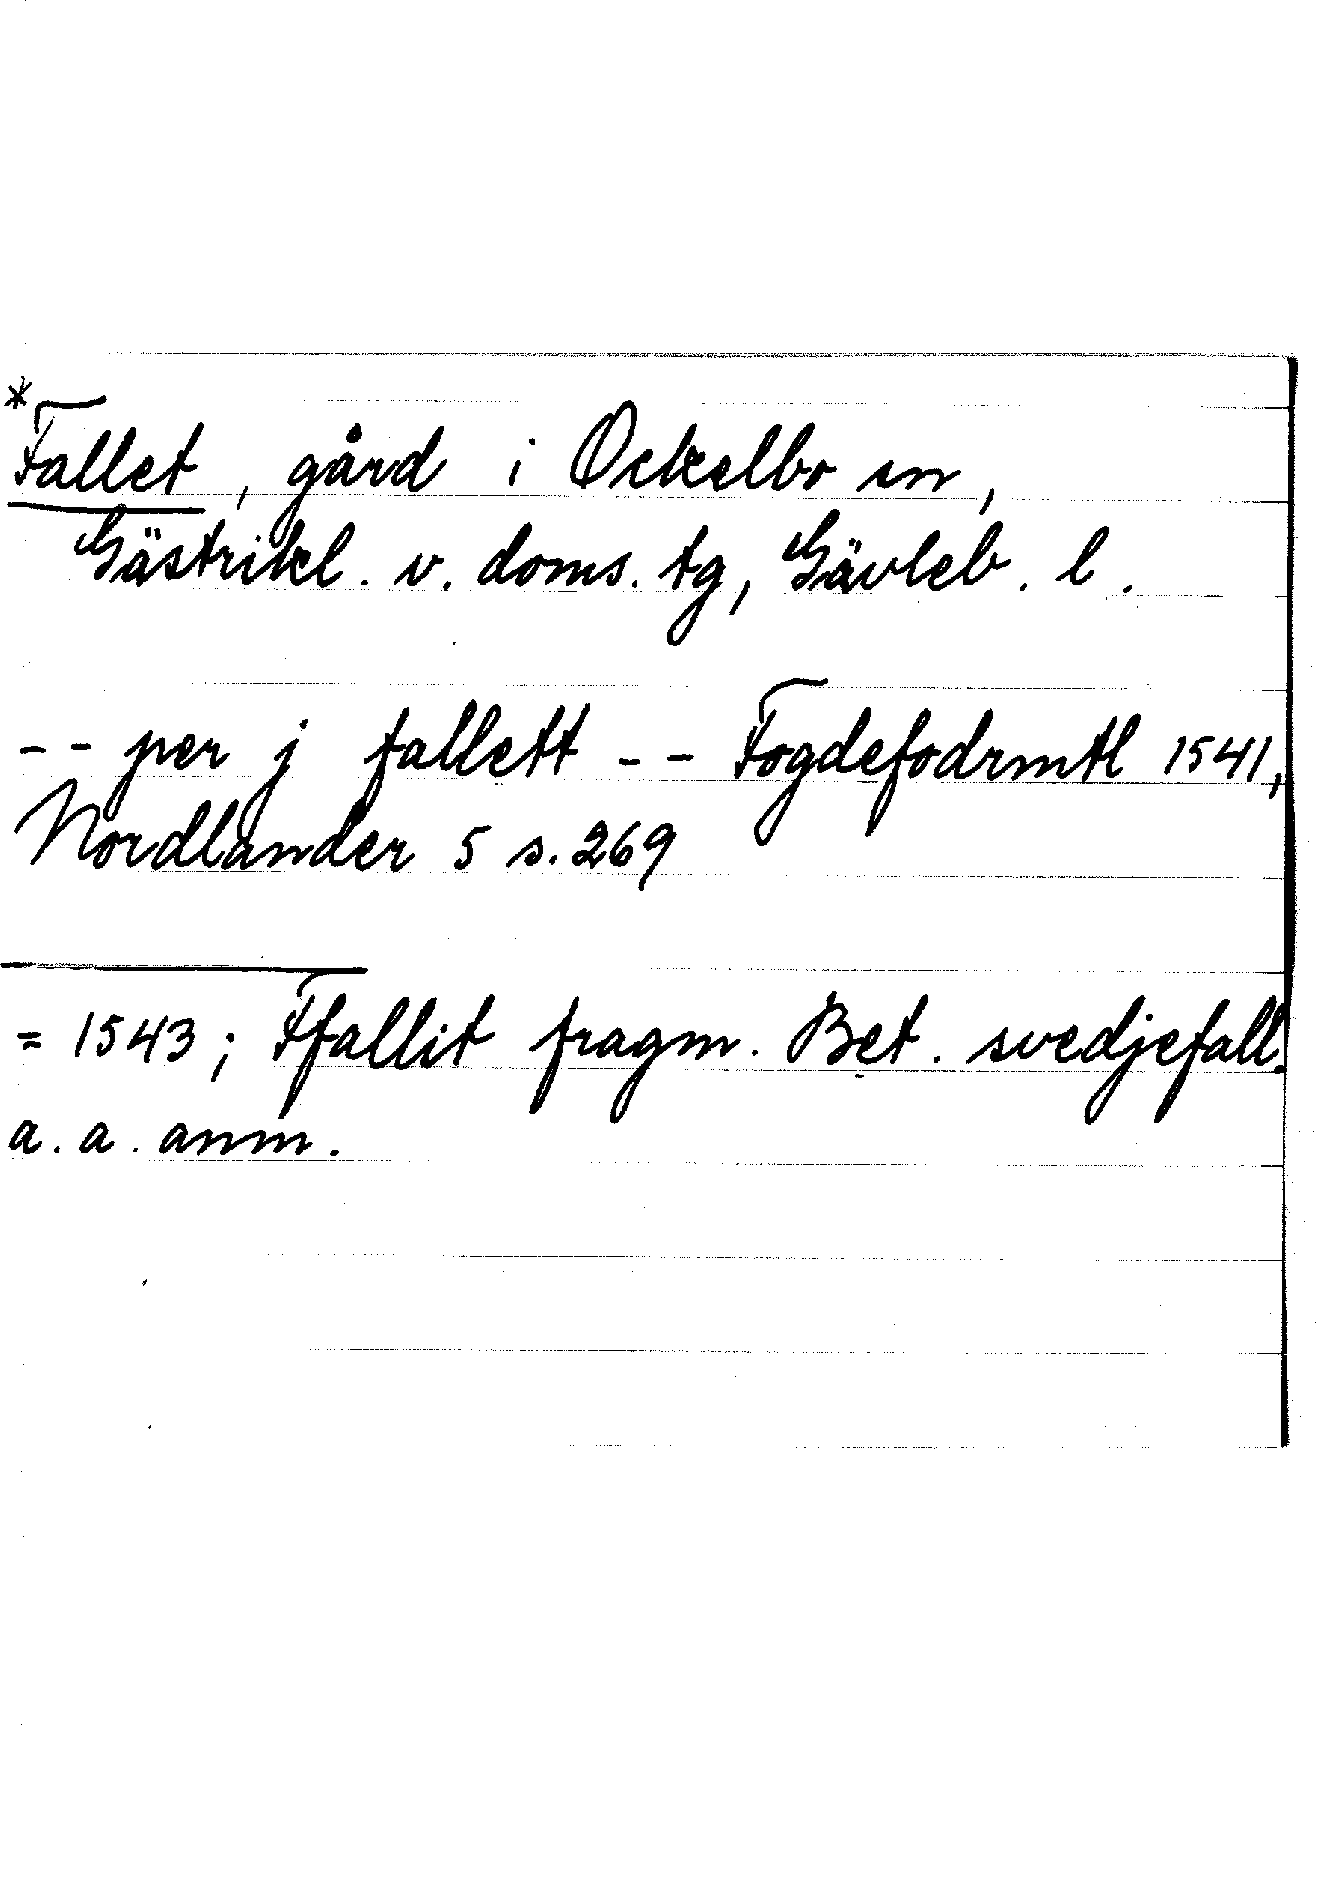 *
Fallet, gård i Ockelbo sn,
Gästrikl. v. doms. tg, Gävleb. l.
-- per j fallett -- Fogdefodrmtl 1541,
Nordlander 5 s. 269
= 1543; Ffallit fragm. Bet. svedjefall.
a. a. anm.